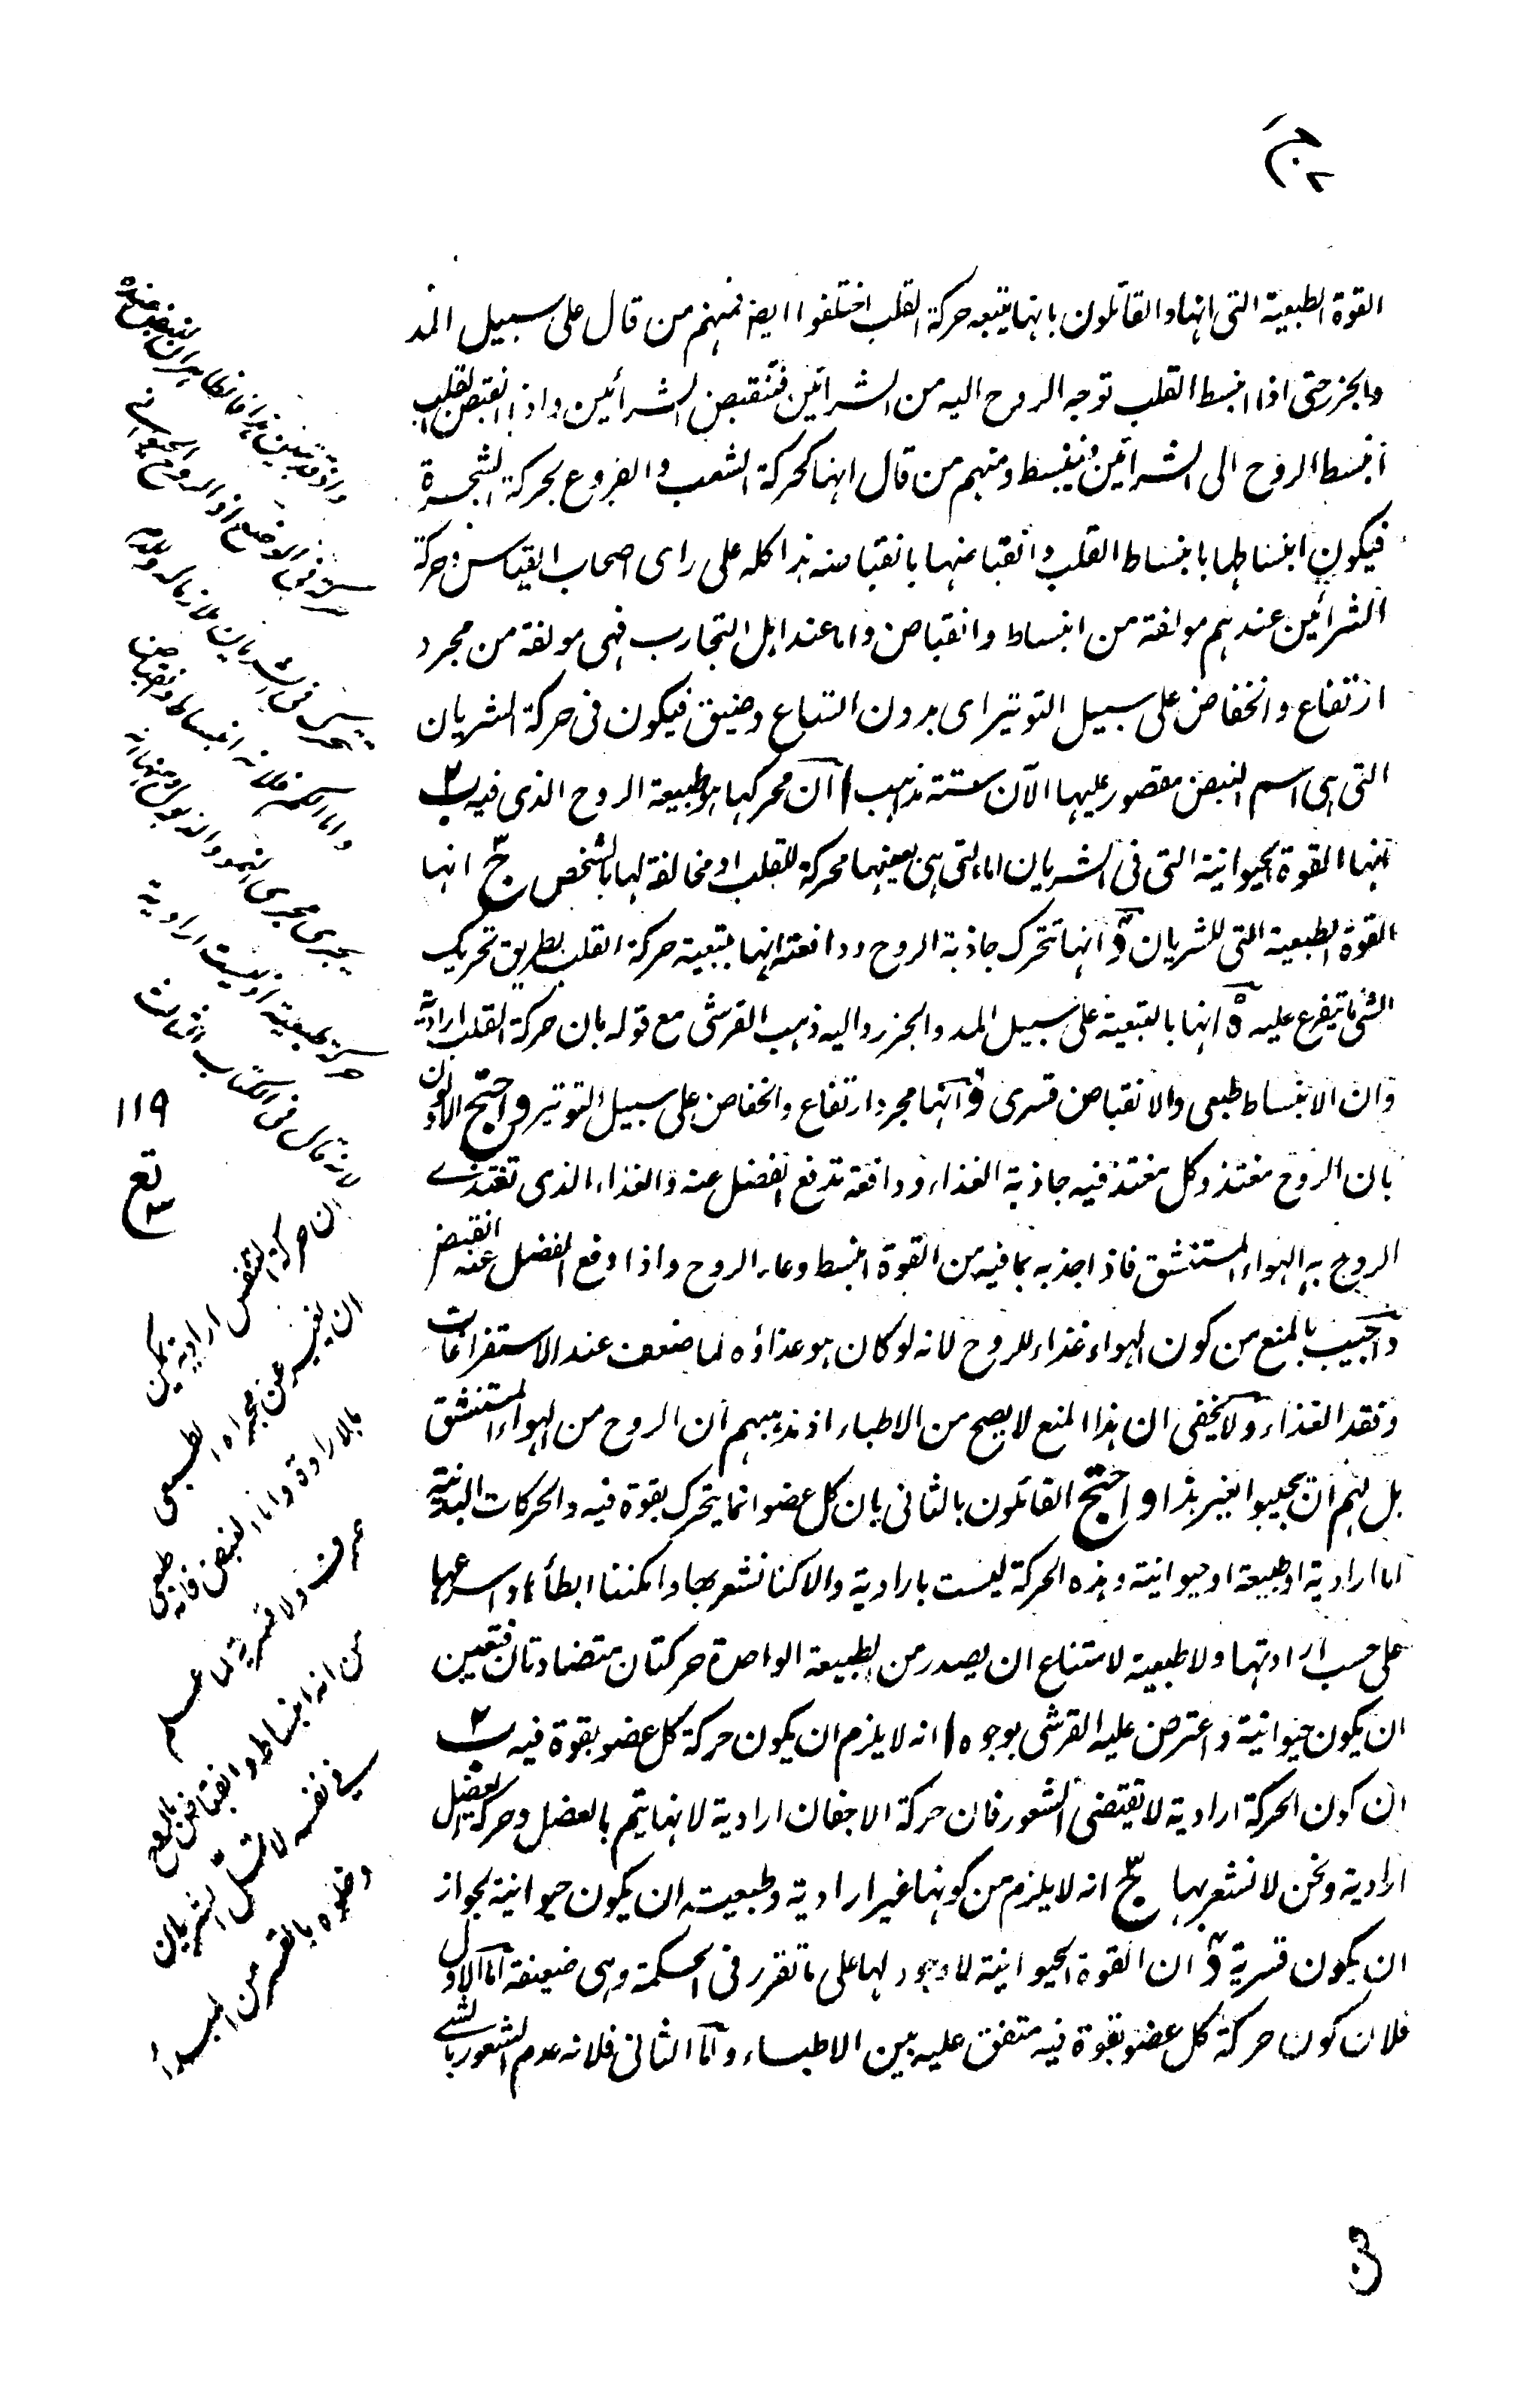 القوة الطبيعية التى انها والقائلون بانها يتبعه حركة القلب اختلفوا ايضا فمنهم من قال على سبيل المد
والجزر حتى اذا انبسط القلب توجه الروح اليه من الشرائين فتنقبض الشرائين واذا انقبض القلب
انبسط الروح الى الشرائين فينبسط ومنهم من قال انها كحركة الشعب والفروع بحركة الشجرة
فيكون انبساطها بانبساط القلب وانقباضها بانقباضه هذا كله على راى اصحاب القياس وحركة
الشرائين عندهم مولفة من انبساط وانقباض واما عند اهل التجارب فهى مولفة من مجرد
ارتفاع وانخفاض على سبيل التوتير اى بدون اتساع وضيق فيكون فى حركة الشريان
التى هى اسم النبض مقصور عليها الآن ستة مذاهب ا ان محركها هو طبيعة الروح الذى فيه ب
انها القوة الحيوانية التى فى الشريان اما التى هى بعينها محركة للقلب او مخالفة لها بالشخص ج انها
القوة الطبيعية التى للشريان د انها تتحرك جاذبة الروح ودافعته انها بتبعية حركة القلب بطريق تحريك
الشئ ما يتفرع عليه ه انها بالتبعية على سبيل المد والجزر واليه ذهب القرشى مع قوله بان حركة القلب ارادية
وان الانبساط طبعى والانقباض قسرى و انها مجرد ارتفاع وانخفاض على سبيل التوتير واحتج الاولون
بان الروح مغتذ وكل مغتذ فيه جاذبة الغذاء ودافعة تدفع الفضل عنه والغذاء الذى تغتذے
الروح به الهواء المستنشق فاذا جذبه بما فيه من القوة انبسط وعاء الروح واذا دفع الفضل عنه انقبض
واجيب بالمنع من كون الهواء غذاء للروح لانه لو كان هو غذاؤه لما ضعف عند الاستفراغات
وفقد الغذاء ولا يخفى ان هذا المنع لا يصح من الاطباء اذ مذهبهم ان الروح من الهواء المستنشق
بل لهم ان يجيبوا بغير هذا واحتج القائلون بالثانى بان كل عضو انما يتحرك بقوة فيه والحركات البدنية
اما ارادية او طبيعة او حيوانية وهذه الحركة ليست بارادية والا لكنا نشعر بها وامكننا ابطاءها واسراعها
على حسب ارادتها ولا طبعية لامتناع ان يصدر من الطبيعة الواحدة حركتان متضادتان فتعين
ان يكون حيوانية واعترض عليه القرشى بوجوه ا انه لا يلزم ان يكون حركة كل عضو بقوة فيه ب
ان كون الحركة ارادية لا يقتضى الشعور فان حركة الاجفان ارادية لانها يتم بالعضل وحركة العضل
ارادية ونحن لا نشعر بها ج انه لا يلزم من كونها غير ارادية وطبعية ان يكون حيوانية لجواز
ان يكون قسرية د ان القوة الحيوانية لا وجود لها على ما تقرر فى الحكمة وهى ضعيفة اما الاول
فلان كون حركة كل عضو بقوة فيه متفق عليه بين الاطباء واما الثانى فلانه عدم الشعور بالشے
واما الكم فلانه انبساط وانقباض
يجرى مجرى النمو والذبول
حركة طبيعية او ليست ارادية
١١٩
ان حركة التنفس ارادية يمكن
ان يغيره عن مجراه الطبيعى
بالارادة واما النبض فانه طبيعى
صرف ولا قسرية
من انه انبساط وانقباض
فى نفسه